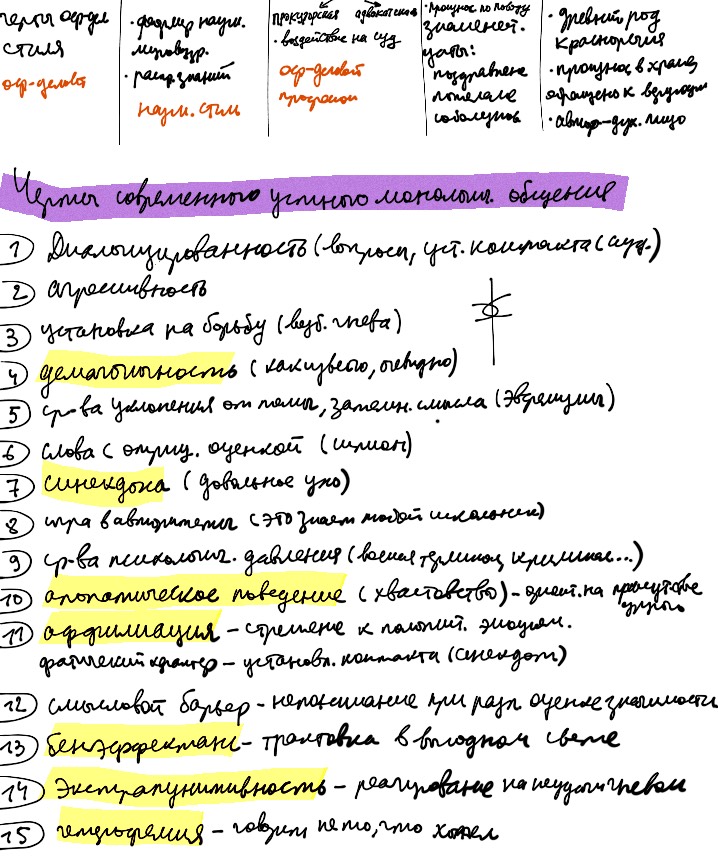 черты офиц
стиля
оф-делов
• формир научн.
мировозр.
• распр. знаний
научн. стиль
прокурорская адвокатская
• воздействие на суд
оф-деловой
• произнос по поводу
знаменат.
даты:
поздравление
пожелание
соболезнов
• древний род
красноречия
• произнос в храме,
обращено к верующим
• автор-дух. лицо
Черты современного устного монологич. общения
1 Диалогизированность (вопросы, уст. контакта с ауд.)
2 агрессивность
3 установка на борьбу (возб. гнева)
4 демагогичность (как известно, очевидно)
5 ср-ва уклонения от темы, затемн. смысла (эвфемизмы)
6 слова с отриц. оценкой (шпион)
7 синекдоха (довольное ухо)
8 игра в авторитеты (это знает любой школьник)
9 ср-ва психологич. давления (военная терминол, криминал...)
10 апопатическое поведение (хвастовство) - ориент. на присутствие
другого
11 аффилиация - стремление к положит. эмоциям.
фатический характер - установл. контакта (синекдох)
12 смысловой барьер - непонимание при разл оценке значимости
13 бенэффектанс - трактовка в выгодном свете
14 Экстрапунитивность - реагирование на неудачи гневом
15 гендофремия - говорит не то, что хотел